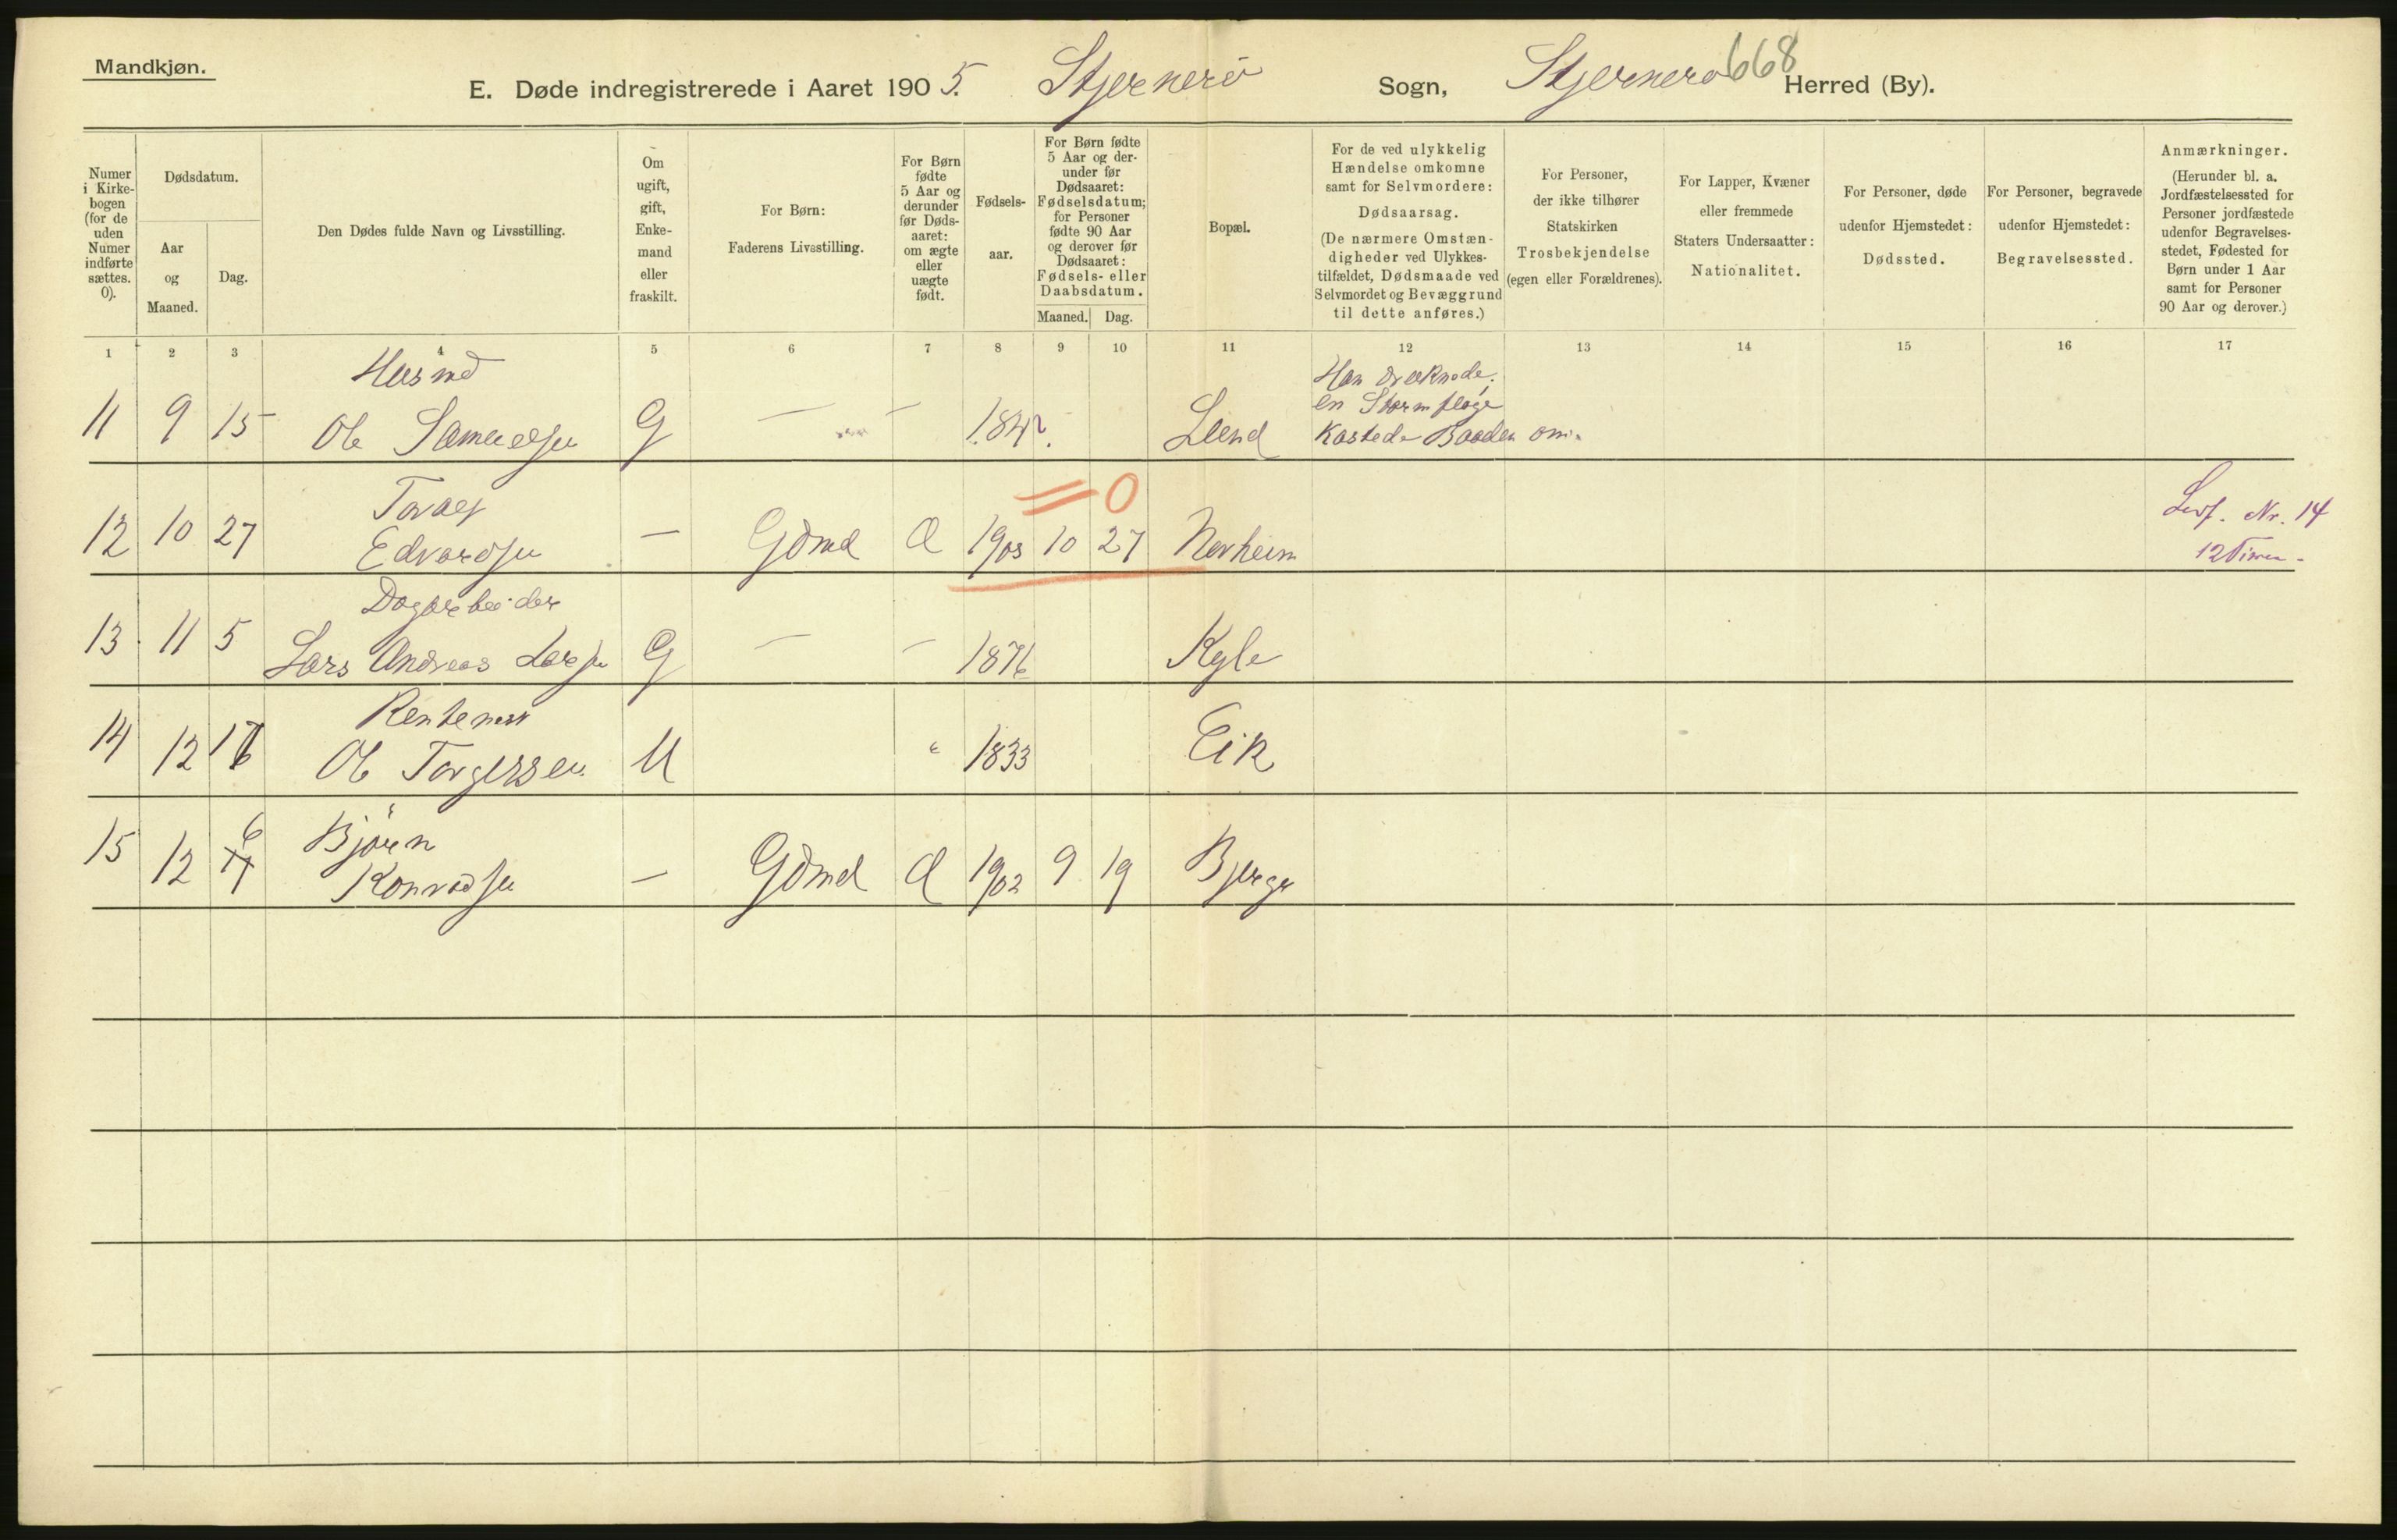 Mandkjøn.
E. Døde indregistrerede i Aaret 1905. Stjernerö Sogn, Stjernerö Herred (By).
668
Numer i Kirkebogen (for de uden Numer indførte sættes. 0).
Dødsdatum.
Aar og Maaned.
Dag.
Den Dødes fulde Navn og Livsstilling.
Om ugift, gift, Enkemand eller fraskilt.
For Børn: Faderens Livsstilling.
For Børn fødte 5 Aar og derunder før Dødsaaret: om ægte eller uægte født.
Fødselsaar.
For Børn fødte 5 Aar og derunder før Dødsaaret: Fødselsdatum; for Personer fødte 90 Aar og derover før Dødsaaret: Fødsels- eller Daabsdatum.
Maaned. Dag.
Bopæl.
For de ved ulykkelig Hændelse omkomne samt for Selvmordere: Dødsaarsag. (De nærmere Omstændigheder ved Ulykkestilfældet, Dødsmaade ved Selvmordet og Bevæggrund til dette anføres.)
For Personer, der ikke tilhører Statskirken Trosbekjendelse (egen eller Forældrenes).
For Lapper, Kvæner eller fremmede Staters Undersaatter: Nationalitet.
For Personer, døde udenfor Hjemstedet: Dødssted.
For Personer, begravede udenfor Hjemstedet: Begravelsessted.
Anmærkninger. (Herunder bl. a. Jordfæstelsessted for Personer jordfæstede udenfor Begravelsesstedet, Fødested for Børn under 1 Aar samt for Personer 90 Aar og derover.)
1 2 3 4 5 6 7 8 9 10 11 12 13 14 15 16 17
Husmd
11 9 15 Ole Samuelsen G — — 184 Lund
Han druknede;
en Stormfloge
kastede Baaden om.
= 0
12 10 27
Edvardsen — Gdmd 1905 10 27 Norheim
Nr. 14
12 Timer
Dagarbeider
13 11 5 Lars Andreas Larsen G — — 1876 Kyle
14 12 Ole Torgersen U " 1833 Eik
15 12 6 Bjørn
Konradsen — Gdmd 1902 9 19 Bjerge